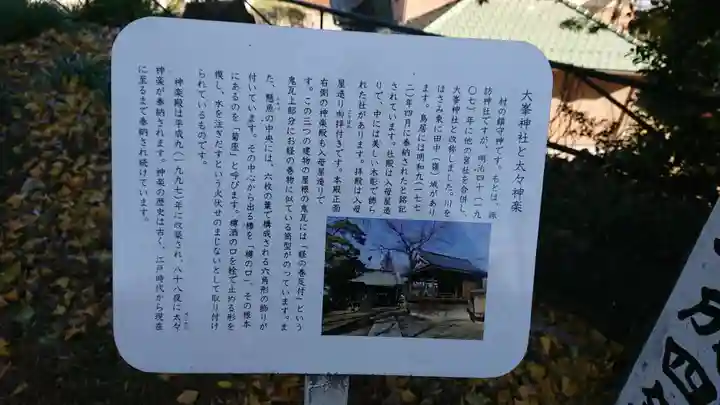 大峯神社と太々神楽
村の鎮守神です。もとは、諏
訪神社ですが、明治四十(一九
〇七)年に他の宮社を合併し、
大峯神社と改称しました。川を
はさみ東に田中(種)城があり
ます。鳥居には明和九(一七七
二)年四月に奉納されたと銘記
されています。社殿は入母屋造
りで、中には美しい木彫で飾ら
れた社があります。拝殿は入母
屋造り向拝付きです。本殿正面
右側の神楽殿も入母屋造りで
す。この三つの建物の屋根の鬼瓦には「経の巻足付」という
鬼瓦上部分にお経の巻物に似ている筒型がのっています。ま
た、懸魚の中央には、六枚の葉で構成される六角形の飾りが
付いています。その中心から出る棒を「樽の口」、その根本
にあるのを「菊座」と呼びます。樽酒の口を栓で止める形を
模し、水を注ぎだすという火伏せのまじないとして取り付け
られているものです。
神楽殿は平成九(一九九七)年に改築され、八十八夜に太々
神楽が奉納されます。神楽の歴史は古く、江戸時代から現在
に至るまで奉納され続けています。
四